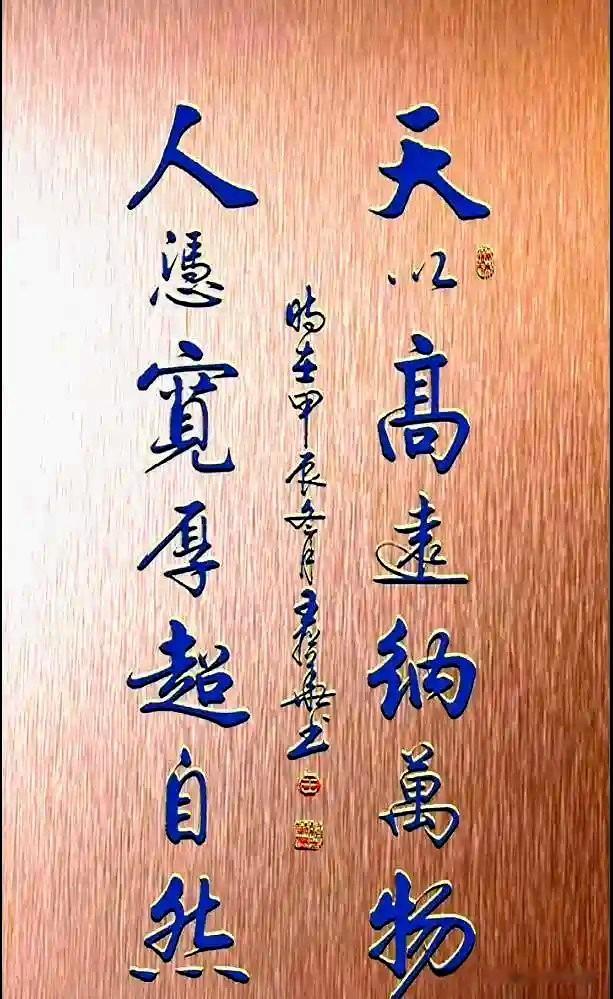 天以高遠納萬物
時在甲辰冬月王書
人憑寬厚超自然